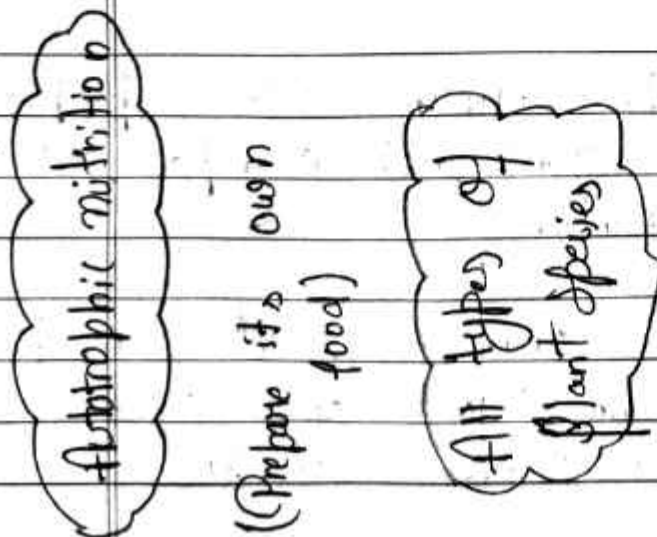 Autotrophic nitrition
(Prepare its own
food)
All types of
plant speies